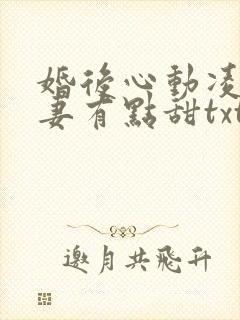 婚後心動凌
妻有點甜txt
邀月共飛升